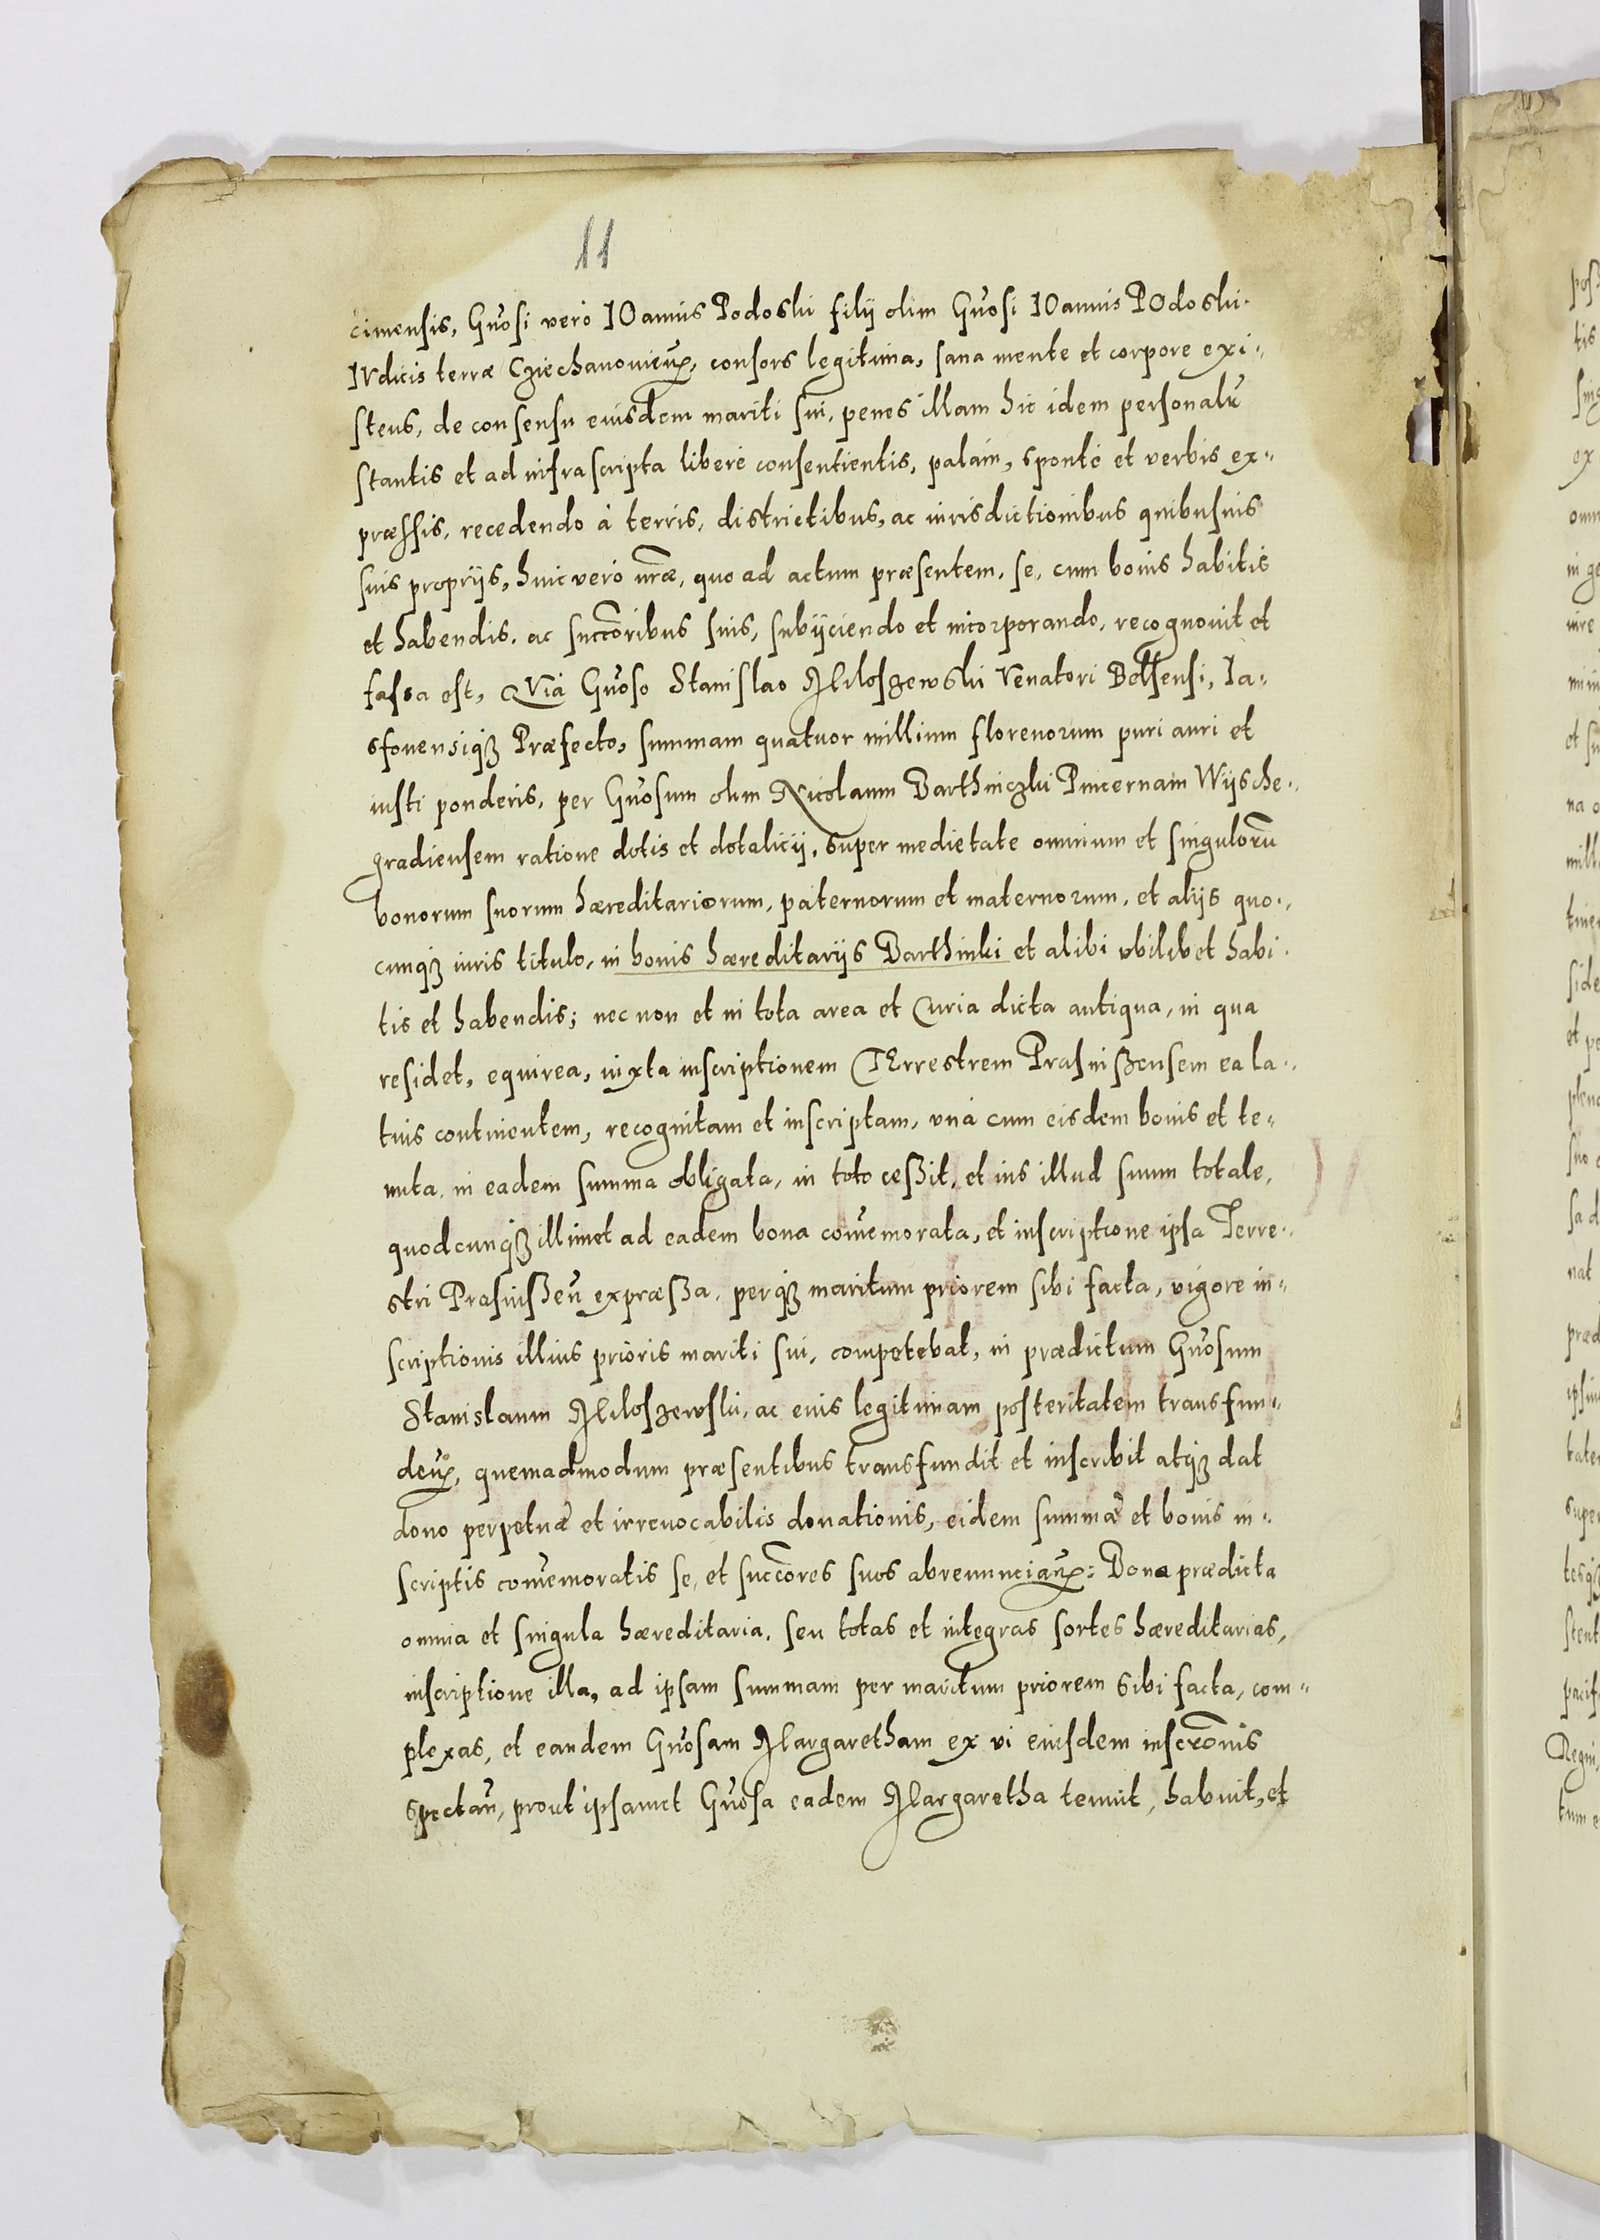 11
cimensis, Gnosi vero IOannis Podoski filij olim Gnosi IOannis POdoski
IVdicis terræ Cziechanovien, consors legitima, sana mente et corpore exi-
stens, de consensu eiusdem mariti sui, penes illam hic idem personalr
stantis et ad infrascripta liberè consentientis, palàm, spontè et verbis ex-
præssis, recedendo à terris, districtibus, ac iurisdictionibus quibusuis
suis proprijs, huic verò nræ, quo ad actum præsentem, se, cum bonis habitis
et habendis, ac succoribus suis, subijciendo et incorporando, recognouit et
fassa est, QVià Gnoso Stanislao Miloszewski Venatori Belsensi, Ia-
sfonensiq3 Præfecto, summam quatuor millium florenorum puri auri et
iusti ponderis, per Gnosum olim Nicolaum Barthniczki Pincernam Wijsche-
gradiensem ratione dotis et dotalicij, super medietate omnium et singuloru
bonorum suorum hæreditariorum, paternorum et maternorum, et alijs quo-
cunq3 iuris titulo, in bonis hæreditarijs Barthinki et alibi vbilibet habi-
tis et habendis; nec non et in tota area et Curia dicta antiqua, in qua
residet, equirea, iuxta inscriptionem TErrestrem Prasnißensem ea la-
tius continentem, recognitam et inscriptam, vnà cum eisdem bonis et te-
nuta, in eadem summa obligata, in toto ceßit, et ius illud suum totale,
quodcunq3 illimet ad eadem bona comemorata, et inscriptione ipsa Terre-
stri Prasnißen expræßa, perq3 maritum priorem sibi facta, vigore in-
scriptionis illius prioris mariti sui, competebat, in prædictum Gnosum
Stanislaum Miloszewski, ac eius legitimam posteritatem transfun-
den, quemadmodum præsentibus transfundit et inscribit atq3 dat
dono perpetuæ et irreuocabilis donationis, eidem summæ et bonis in-
scriptis comemoratis se, et succores suos abrenuncian: Bona prædicta
omnia et singula hæreditaria, seu totas et integras sortes hæreditarias,
inscriptione illa, ad ipsam summam per maritum priorem sibi facta, com-
plexas, et eandem Gnosam Margaretham ex vi eiusdem inscronis
spectan, prout ipsamet Gnosa eadem Margaretha tenuit, habuit, et